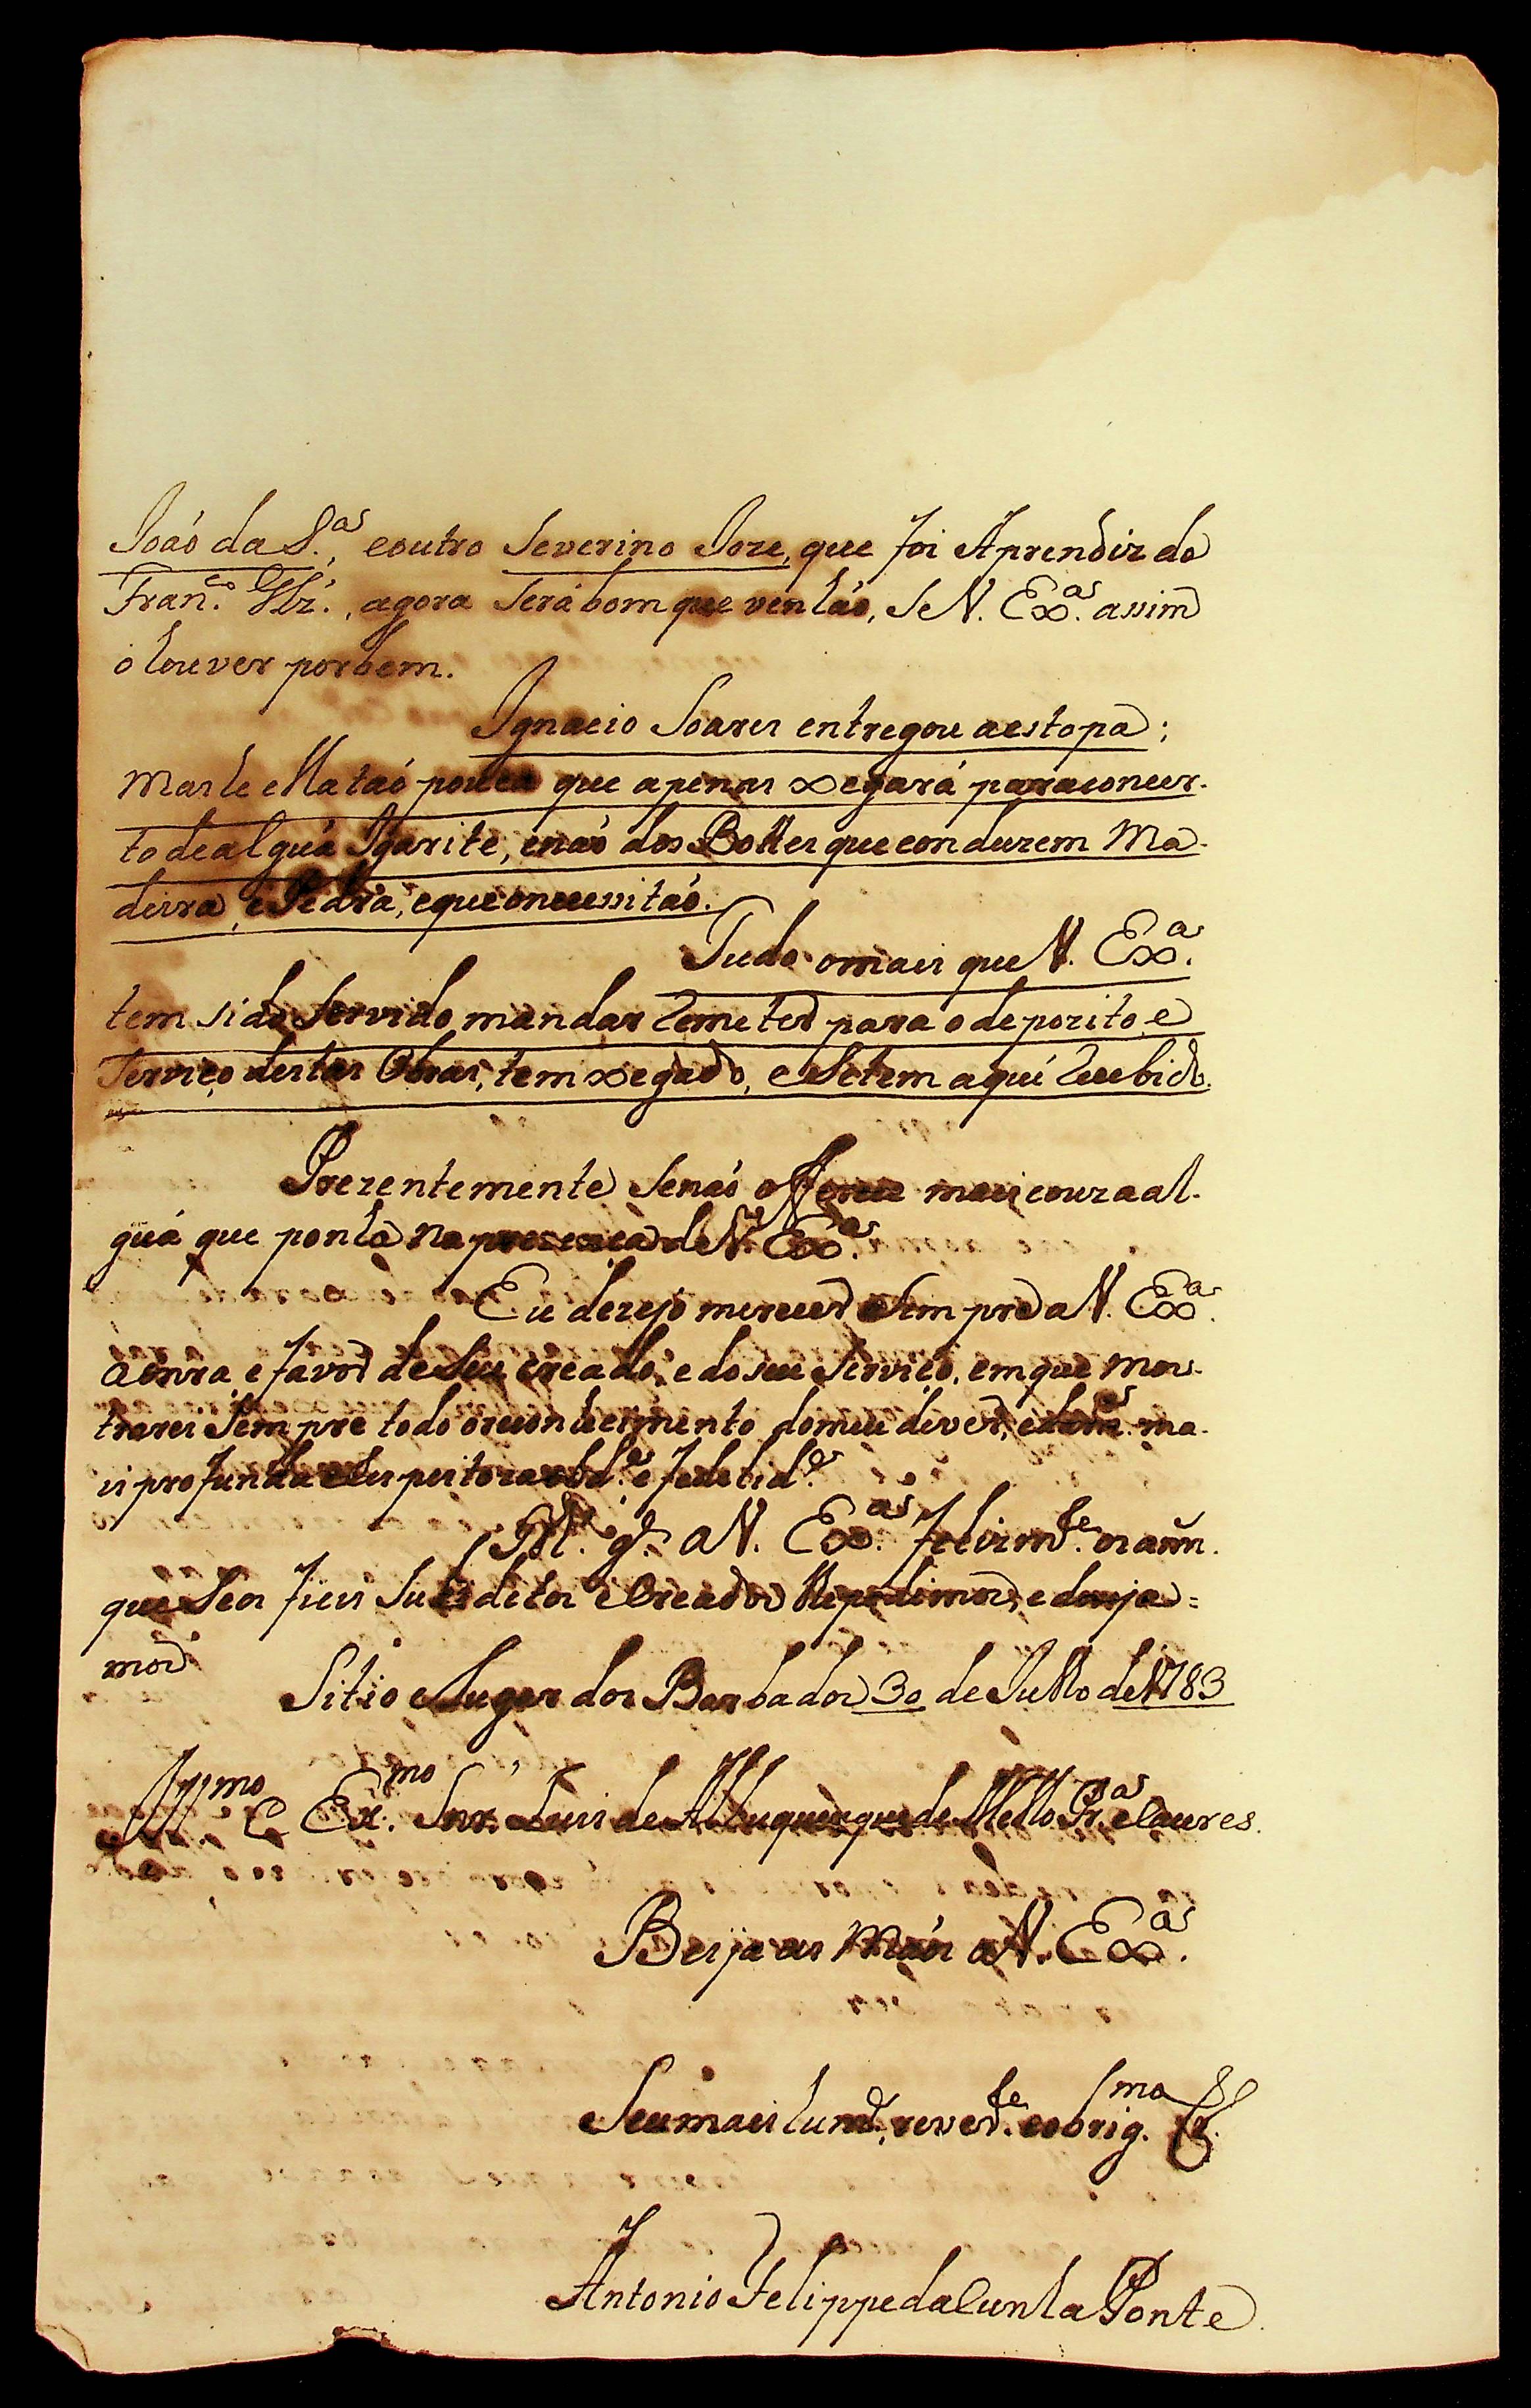 João da S.ª, e outro Severino Joze, que foi Aprendiz do
Fran.co, agora será bom que venhão, se V. Ex.ª assim
o houver por bem.
Ignacio Soares entregou a estopa;
mas he ella taó pouca que apenas xegará para concer-
to de alguá Igarite, e naó dos Bottes que conduzem Ma-
deira, e Pedra, e que o necessitaó.
Tudo o mais que V. Ex.ª
tem sido servido mandar remeter para o depozito, e
Serviço destas Obras, tem xegado, e se tem aqui recebido.
Prezentemente se naó offerece mais couza al-
guá que ponha na prezença de V. Ex.ª
Eu dezejo merecer sempre a V. Ex.ª
a honra, e favor de seu creado, e do seu serviço, em que mos-
trarei sempre todo o reconhecimento do meu dever, e da ma-
is profunda e respeitoza obd.ª e fedelid.e
g.e a V. Ex.ª felizm.te os ann.
que seos fieis subditos e Creados lhe pedimos, e dezeja=
mos
Sitio e Lugar dos Barbados 30 de Julho de 1783
Ill.mo e Ex.mo Snr. Luis de Albuquerque de Mello Pr.ª e Caceres.
Beija as Máos a V. Ex.ª
Seu mais hum.e, rever.te e obrig.mo Cr.
Antonio Felippe da Cunha Ponte